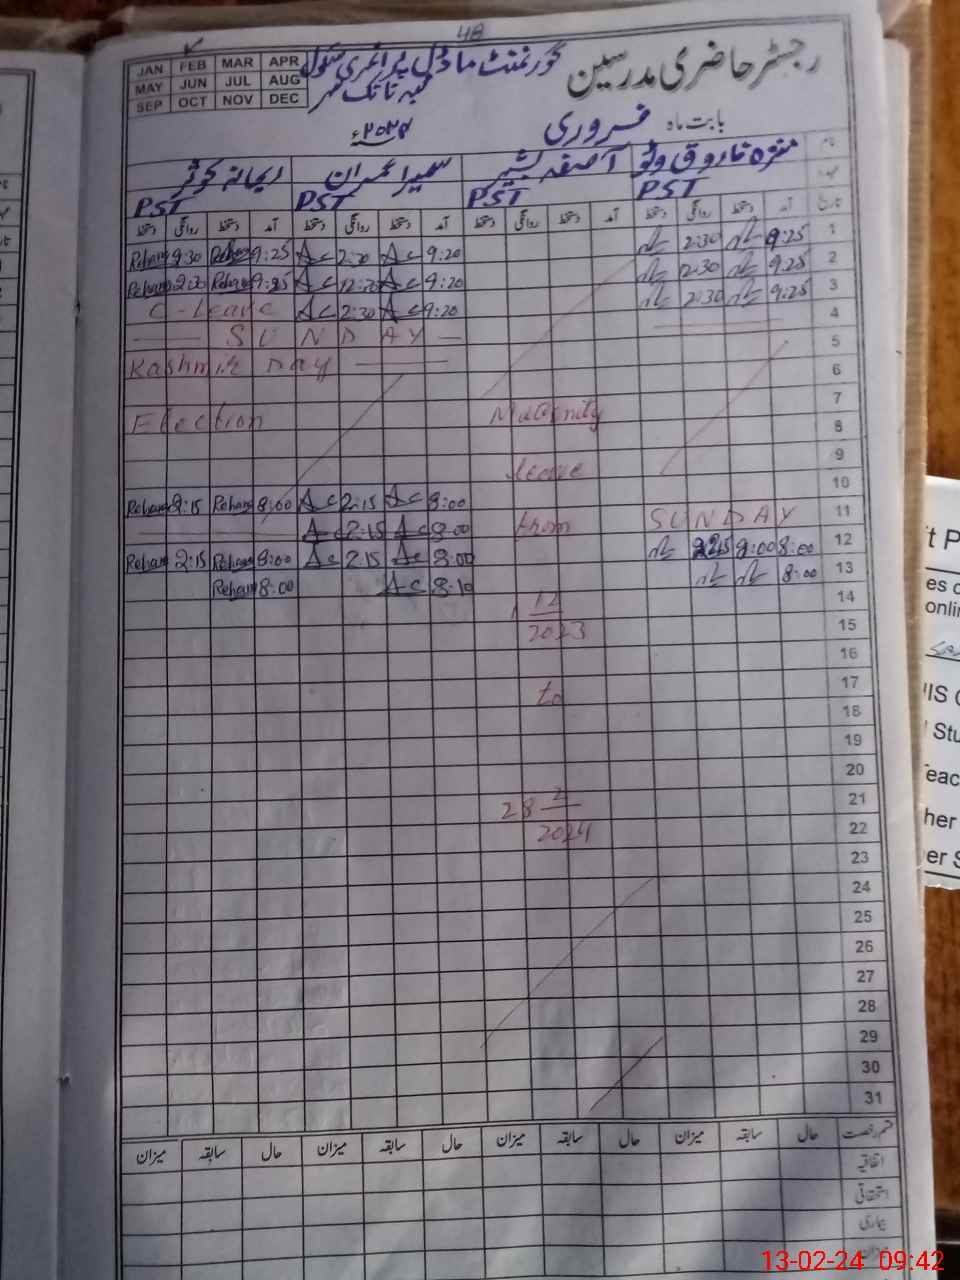 48
JAN FEB MAR APR
MAY JUN JUL AUG
SEP OCT NOV DEC
رجسٹر حاضری مدرسین
گورنمنٹ ماڈل پرائمری سکول
بابت ماہ فروری ۲۰۲۴ء
منزہ فاروق وٹو آصفہ بشیر سمیرا عمران ریحانہ کوثر
PST PST PST PST
تاریخ آمد دستخط روانگی دستخط آمد دستخط روانگی دستخط آمد دستخط روانگی دستخط آمد دستخط روانگی دستخط
Rehana 9:30 Rehana 9:25 Ac 2:30 Ac 9:20 2:30 9:25 1
Rehana 2:30 Rehana 9:25 Ac 12:30 Ac 9:20 2:30 9:25 2
C-Leave Ac 2:30 Ac 9:20 2:30 9:25 3
SUNDAY 4
Kashmir Day 5
6
7
Election Maternity 8
9
leave 10
Rehana 2:15 Rehana 8:00 Ac 2:15 Ac 8:00 11
Ac 2:15 Ac 8:00 from SUNDAY
Rehana 2:15 Rehana 8:00 Ac 2:15 Ac 8:00 2:15 8:00 8:00 12
Rehana 8:00 Ac 8:10 8:00 13
14
12
2023 15
16
to 17
18
19
20
28 2 21
2024 22
23
24
25
26
27
28
29
30
31
قسم رخصت حال سابقہ میزان حال سابقہ میزان حال سابقہ میزان حال سابقہ میزان
اتفاقیہ
استحقاقی
بیماری
میزان
13-02-24 09:42